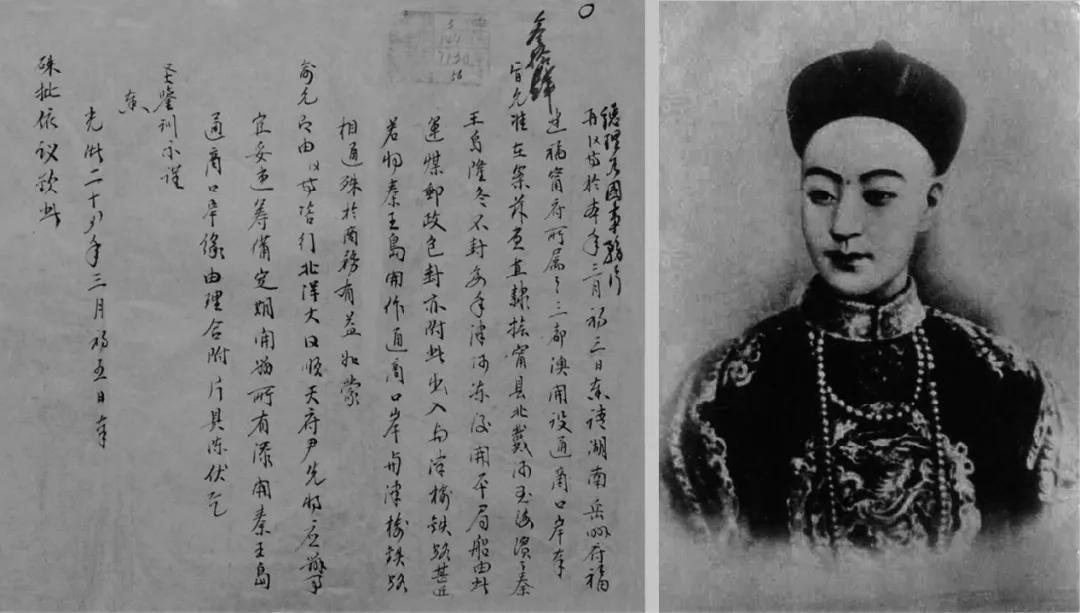 叁拾肆
總理各國事務片
再臣等於本年三月初三日奏請湖南岳州府福
建福甯府所属之三都澳開設通商口岸奉
旨允准在案茲查直隸撫甯縣北戴河至海濱之秦
王島隆冬不封每年津河凍後開平局船由此
運煤郵政包封亦附此出入與津榆鉄路甚近
若將秦王島開作通商口岸與津榆鉄路
相通殊於商務有益如蒙
俞允即由臣等咨行北洋大臣順天府尹先將應辦事
宜妥速籌備定期開辦所有添開秦王島
通商口岸緣由理合附片具陳伏乞
聖鑒訓示謹
奏
光緒二十四年三月初五日奉
硃批依议欽此